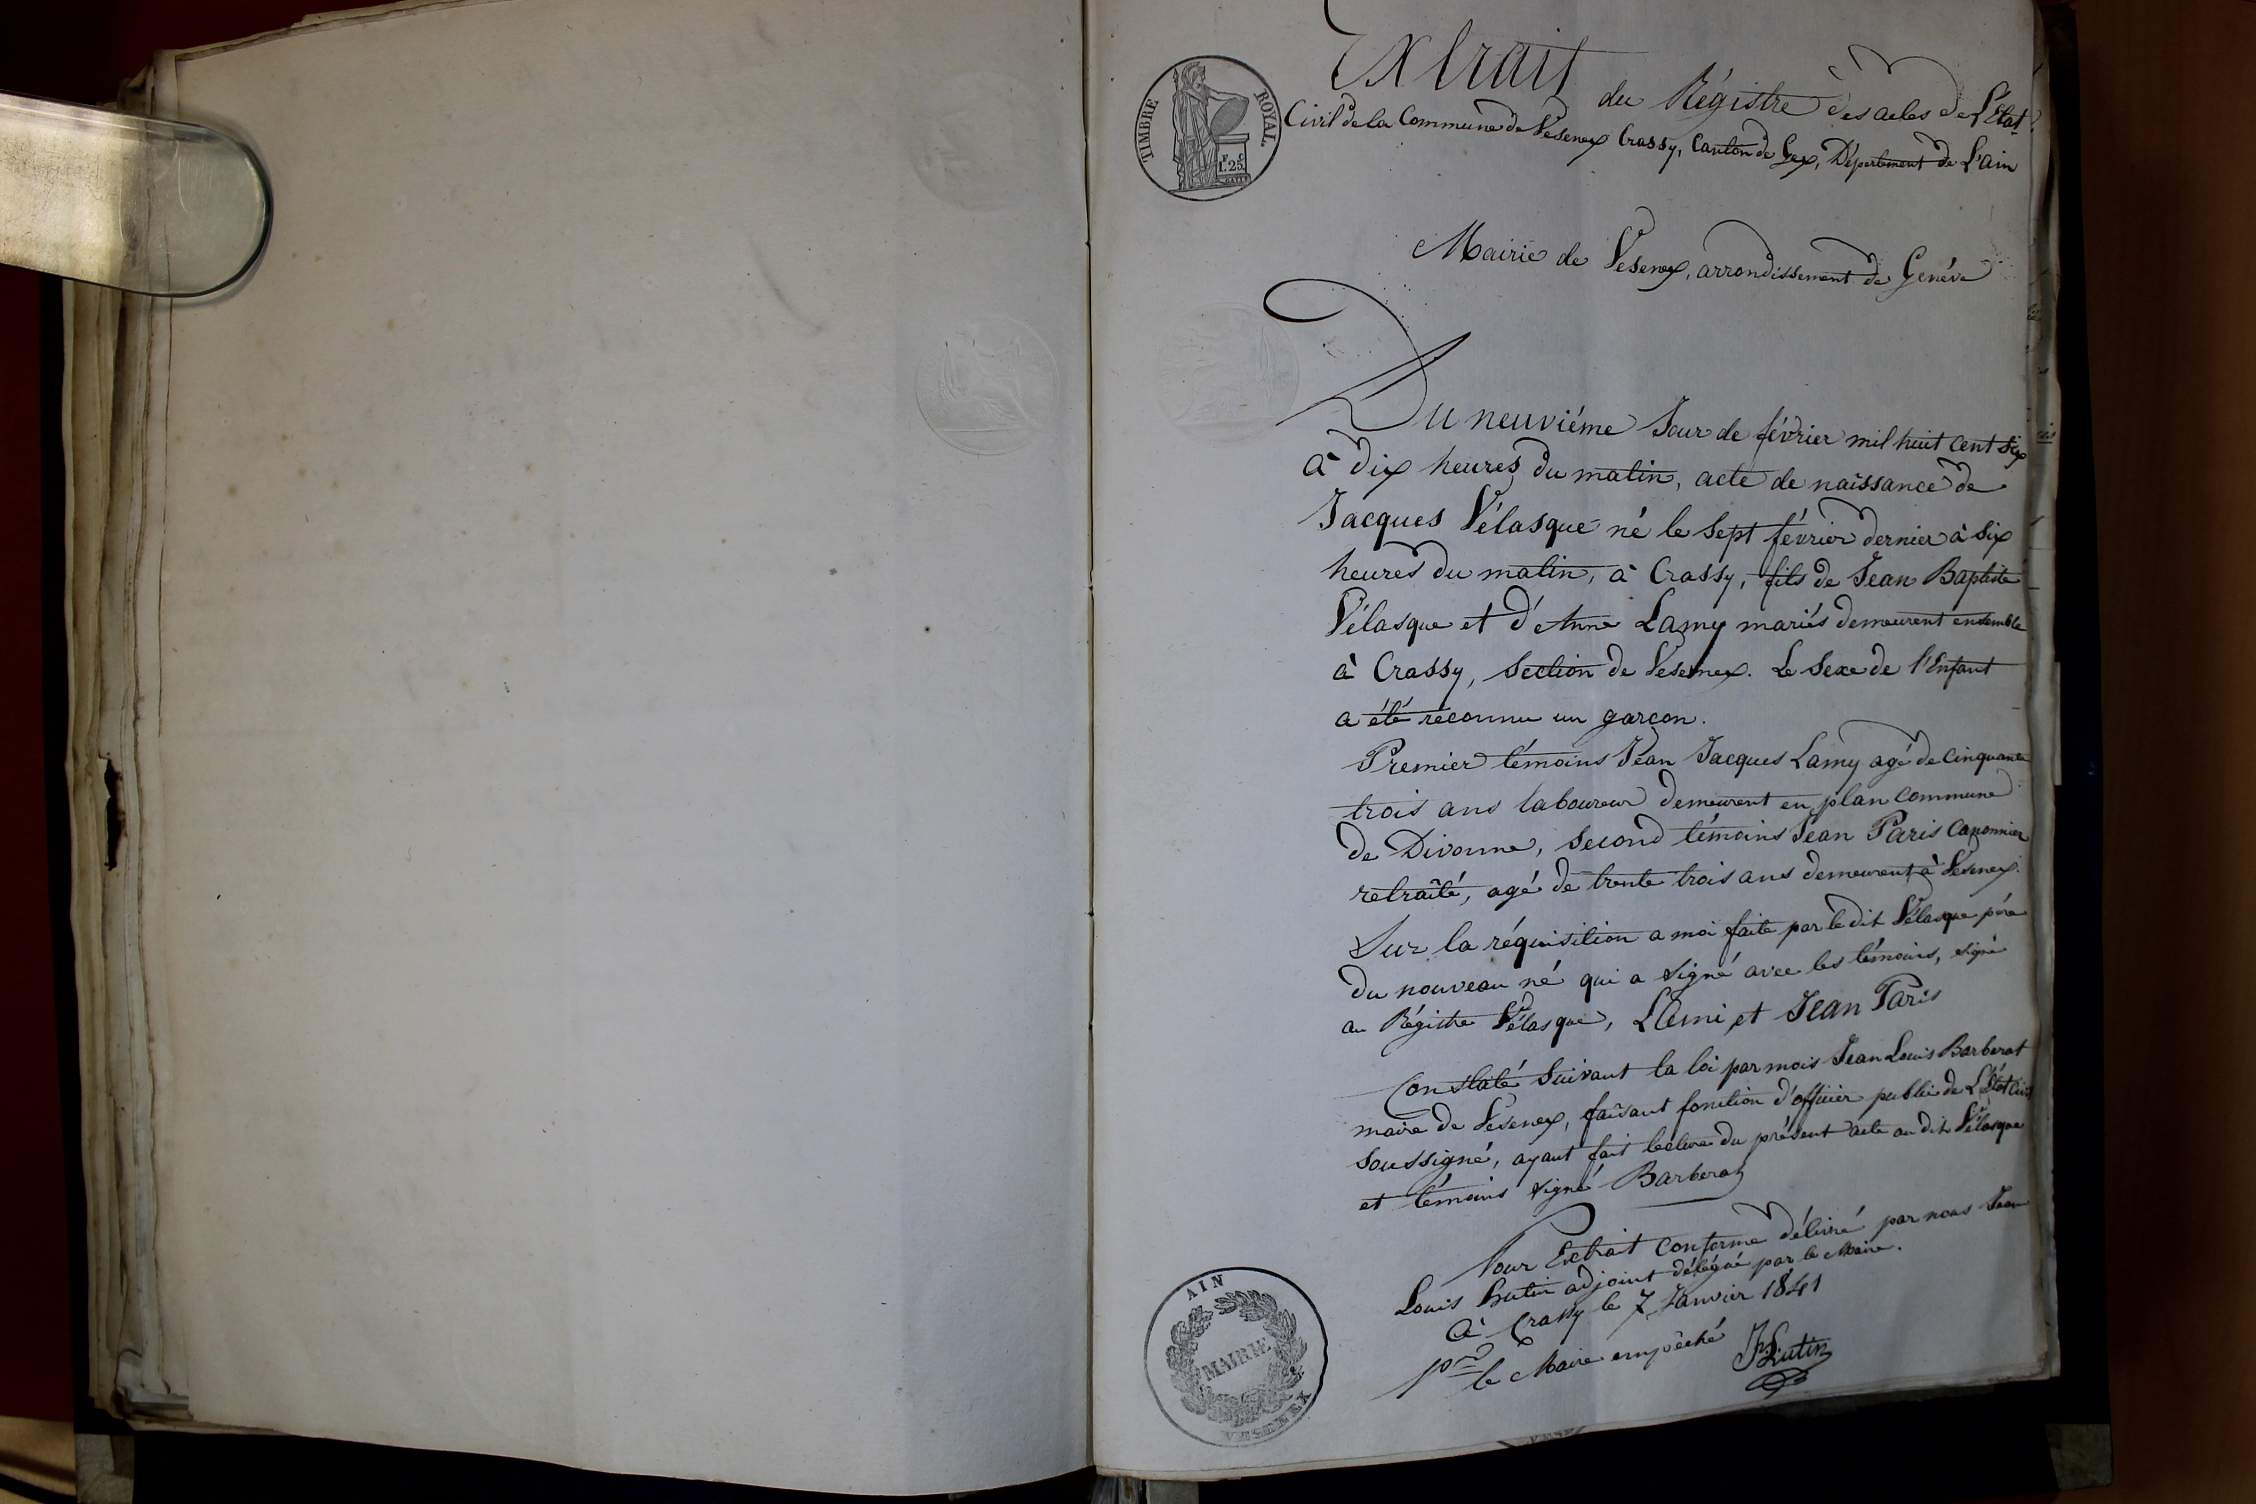 Extrait
du Régistre des actes de l'État
Civil de la Commune de Vesenex Crassy, Canton de Gex, Département de L'ain
TIMBRE ROYAL
1.F 25.C
Mairie de Vesenex, arrondissement de Genéve
Du neuviéme Jour de février mil huit cent six
à dix heures du matin, acte de naissance de
Jacques Vélasque né le Sept février dernier à six
heures du matin, à Crassy, fils de Jean Baptiste
Vélasque et d'Anne Lamy mariés demeurent ensemble
à Crassy, Section de Vesenex. Le Sexe de l'Enfant
a été reconnu un garçon.
Premier témoins Jean Jacques Lamy agé de cinquante
trois ans laboureur demeurent en plan commune
de Divonne, Second témoins Jean Paris Canonnier
retraîté, agé de trente trois ans demeurent à Vesenex.
Sur la réquisition a moi faite par le dit Vélasque pére
du nouveau né qui a signé avec les témoins, signé
au Régistre Vélasque, LAmi et Jean Paris
Constaté Suivant la loi par mois Jean Louis Barberat
maire de Vesenex, faisant fonction d'officier public de L'État Civil
Soussigné, ayant fait lecture du présent acte au dit Vélasque
et témoins signé Barberat
Pour Extrait Conforme délivré par nous Jean
Louis hutin adjoint délégué par le Maire.
à Crassy le 7 Janvier 1841
pr le Maire empêché
JLhutin
AIN
MAIRIE
VESENEX